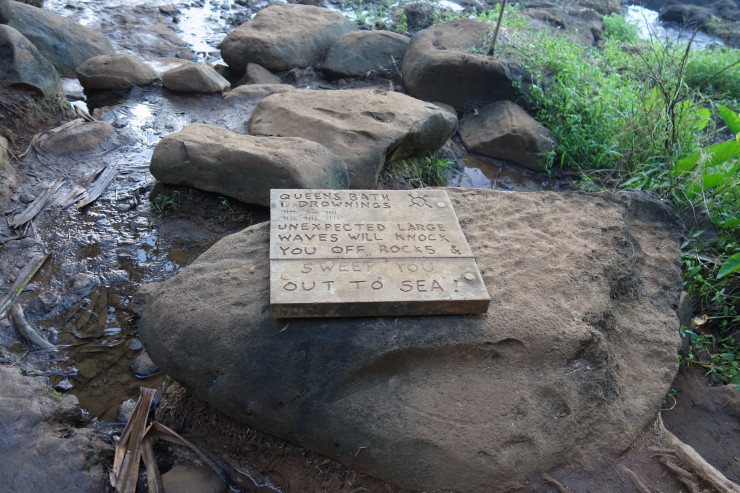 QUEENS BATH
DROWNINGS
UNEXPECTED LARGE
WAVES WILL KNOCK
YOU OFF ROCKS &
SWEET YOU
OUT TO SEA!